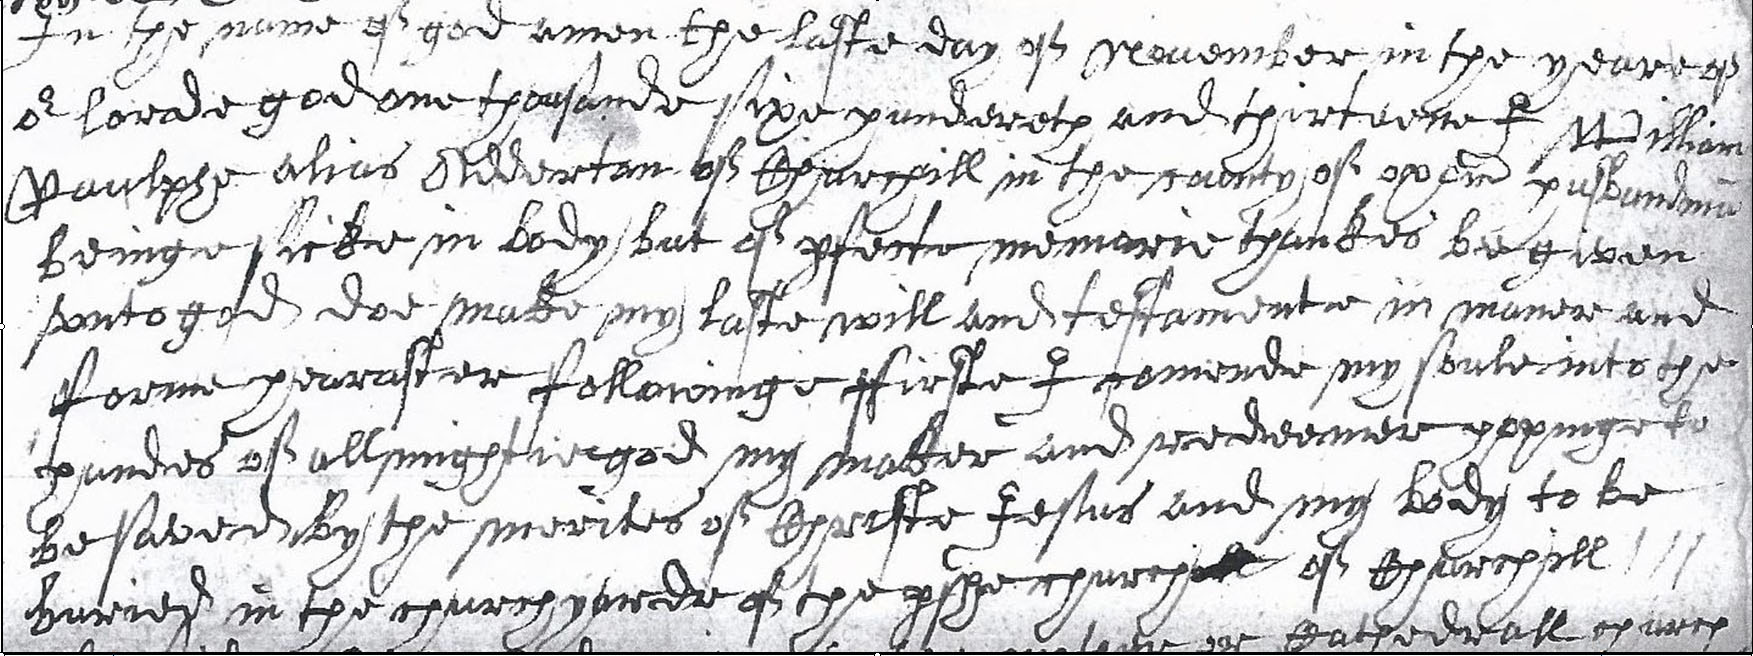 In the name of god amen the laste day of November in the yeare of
or lorde god one thousande sixe hundereth and thirteene I William
Raulphe alias Alderton of Churchill in the county of oxon husbandma
beinge sicke in body but of pfecte memorie thankes be given
vnto god doe make my laste will and testamente in maner and
forme hearafter followinge ffirste I comende my soule into the
handes of allmightie god my maker and redeemer hopinge to
be saved by the merites of Christe Iesus and my body to be
buried in the churchyarde of the pshe church of Churchill
or Cathedrall church